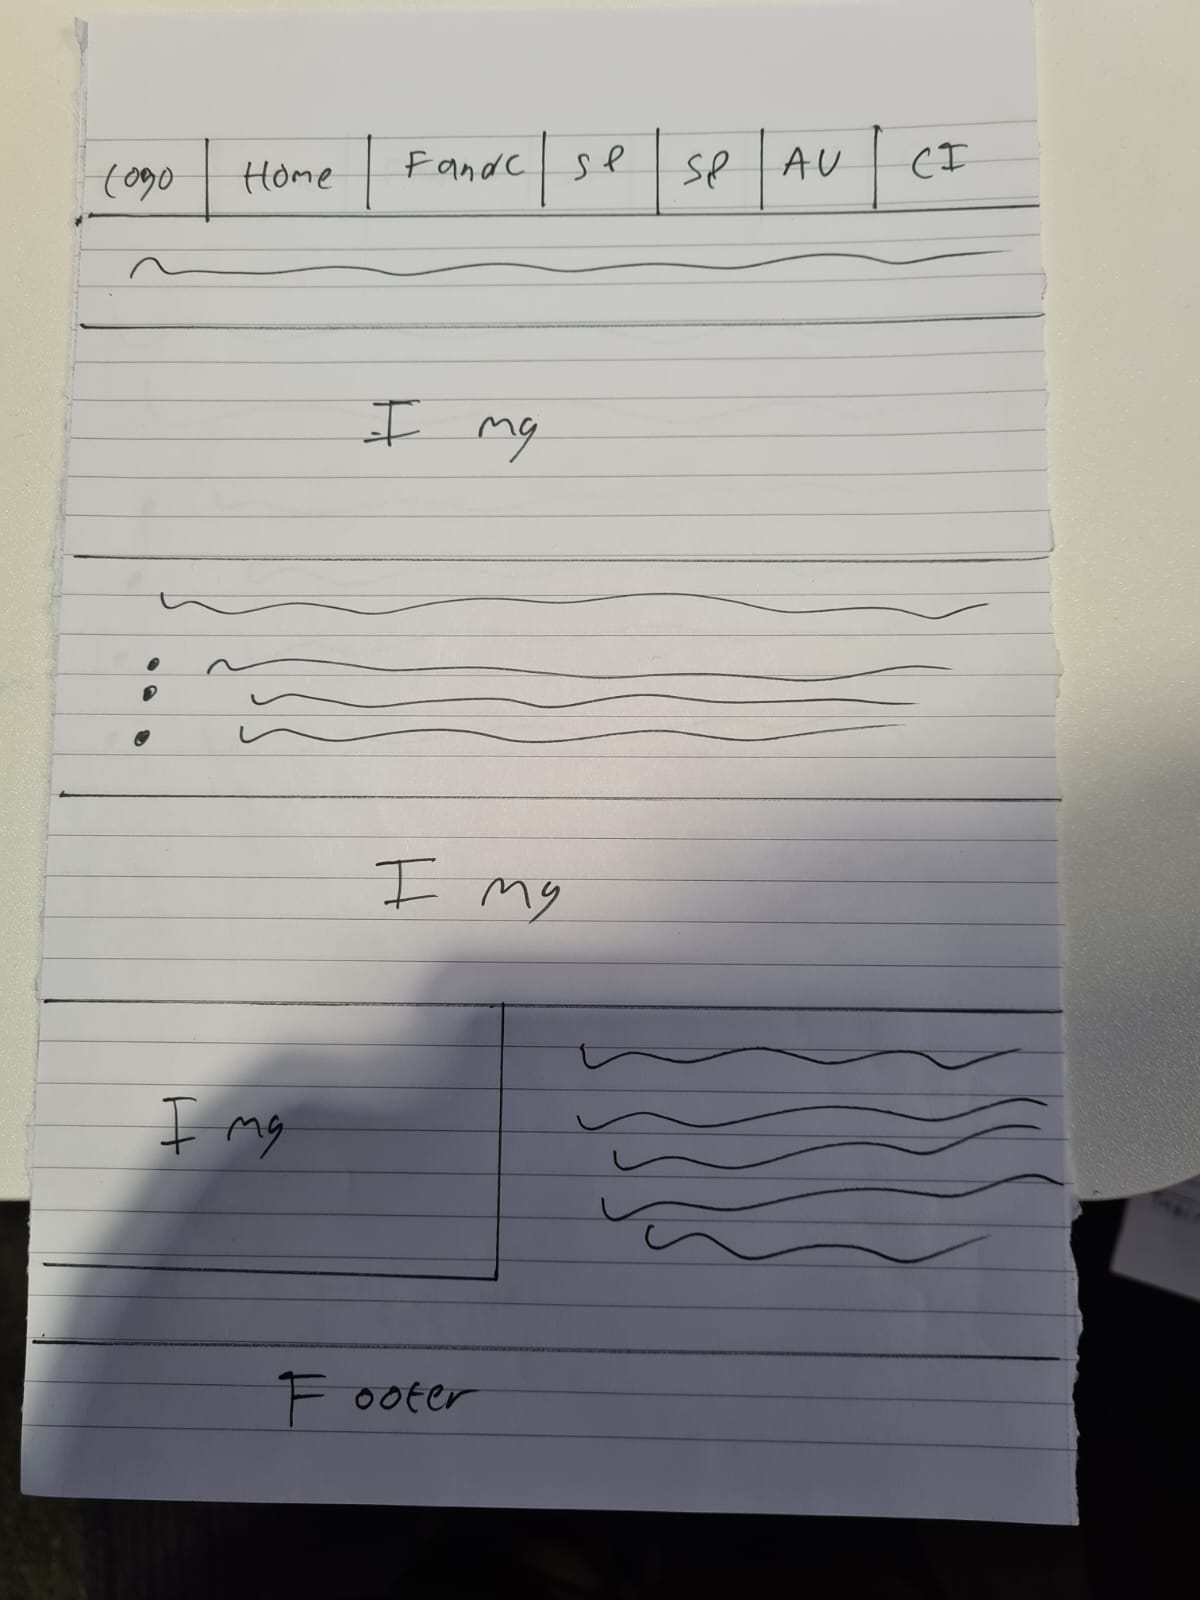 Logo Home Fandc SP SP AU CI
Img
Img
Img
Footer